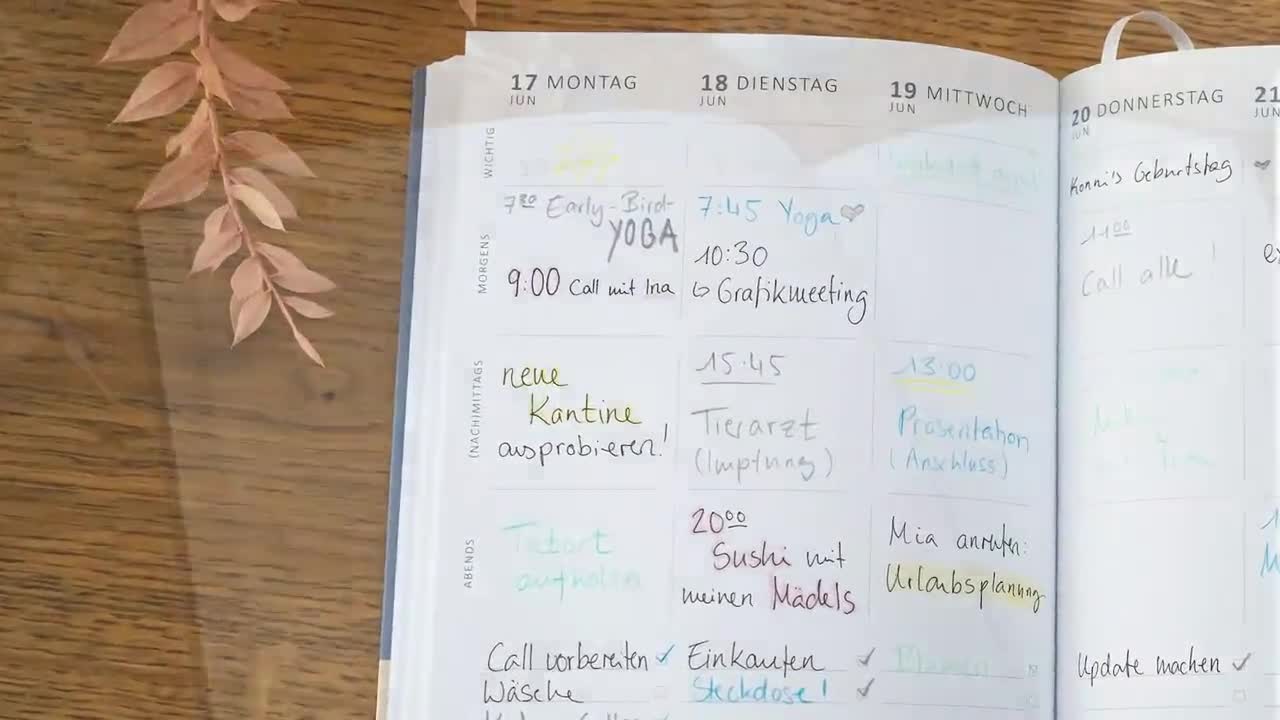 17 MONTAG
JUN
18 DIENSTAG
JUN
19 MITTWOCH
JUN
20 DONNERSTAG
JUN
21
JUN
WICHTIG
Konni's Geburtstag
MORGENS
7³⁰ Early-Bird-
YOGA
9:00 Call mit Ina
7:45 Yoga
10:30
↳ Grafikmeeting
11⁰⁰
Call alle !
(NACH)MITTAGS
neue
Kantine
ausprobieren!
15:45
Tierarzt
(Impfung)
13:00
Präsentation
(Anschluss)
ABENDS
Tatort
aufholen
20⁰⁰
Sushi mit
meinen Mädels
Mia anrufen:
Urlaubsplanung
Call vorbereiten ✓
Wäsche
Einkaufen ✓
Steckdose! ✓
Blumen
Update machen ✓